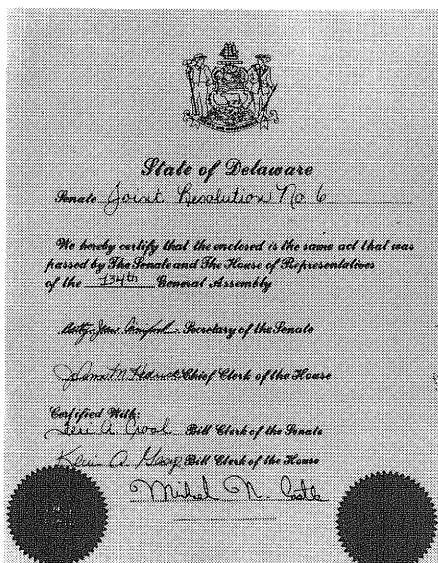 State of Delaware
Senate Joint Resolution No 6
We hereby certify that the enclosed is the same act that was
passed by The Senate and The House of Representatives
of the 134th General Assembly
Betty Jean Secretary of the Senate
M Chief Clerk of the House
Certified With:
A. Bill Clerk of the Senate
A. Bill Clerk of the House
Michael N. Castle